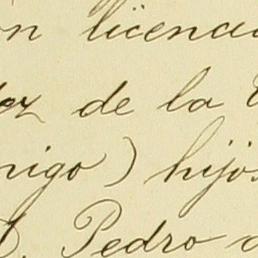 on licencia
de la
nigo) hijos
Pedro